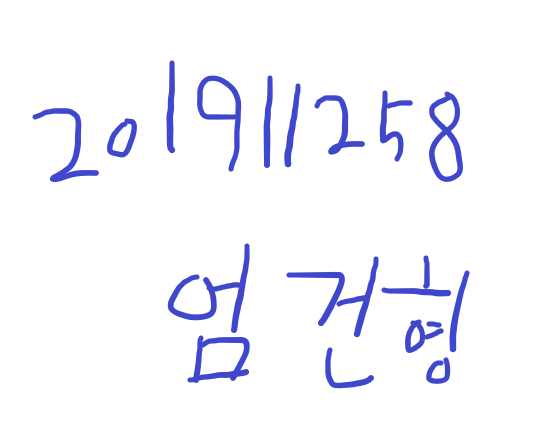 201911258
엄건형